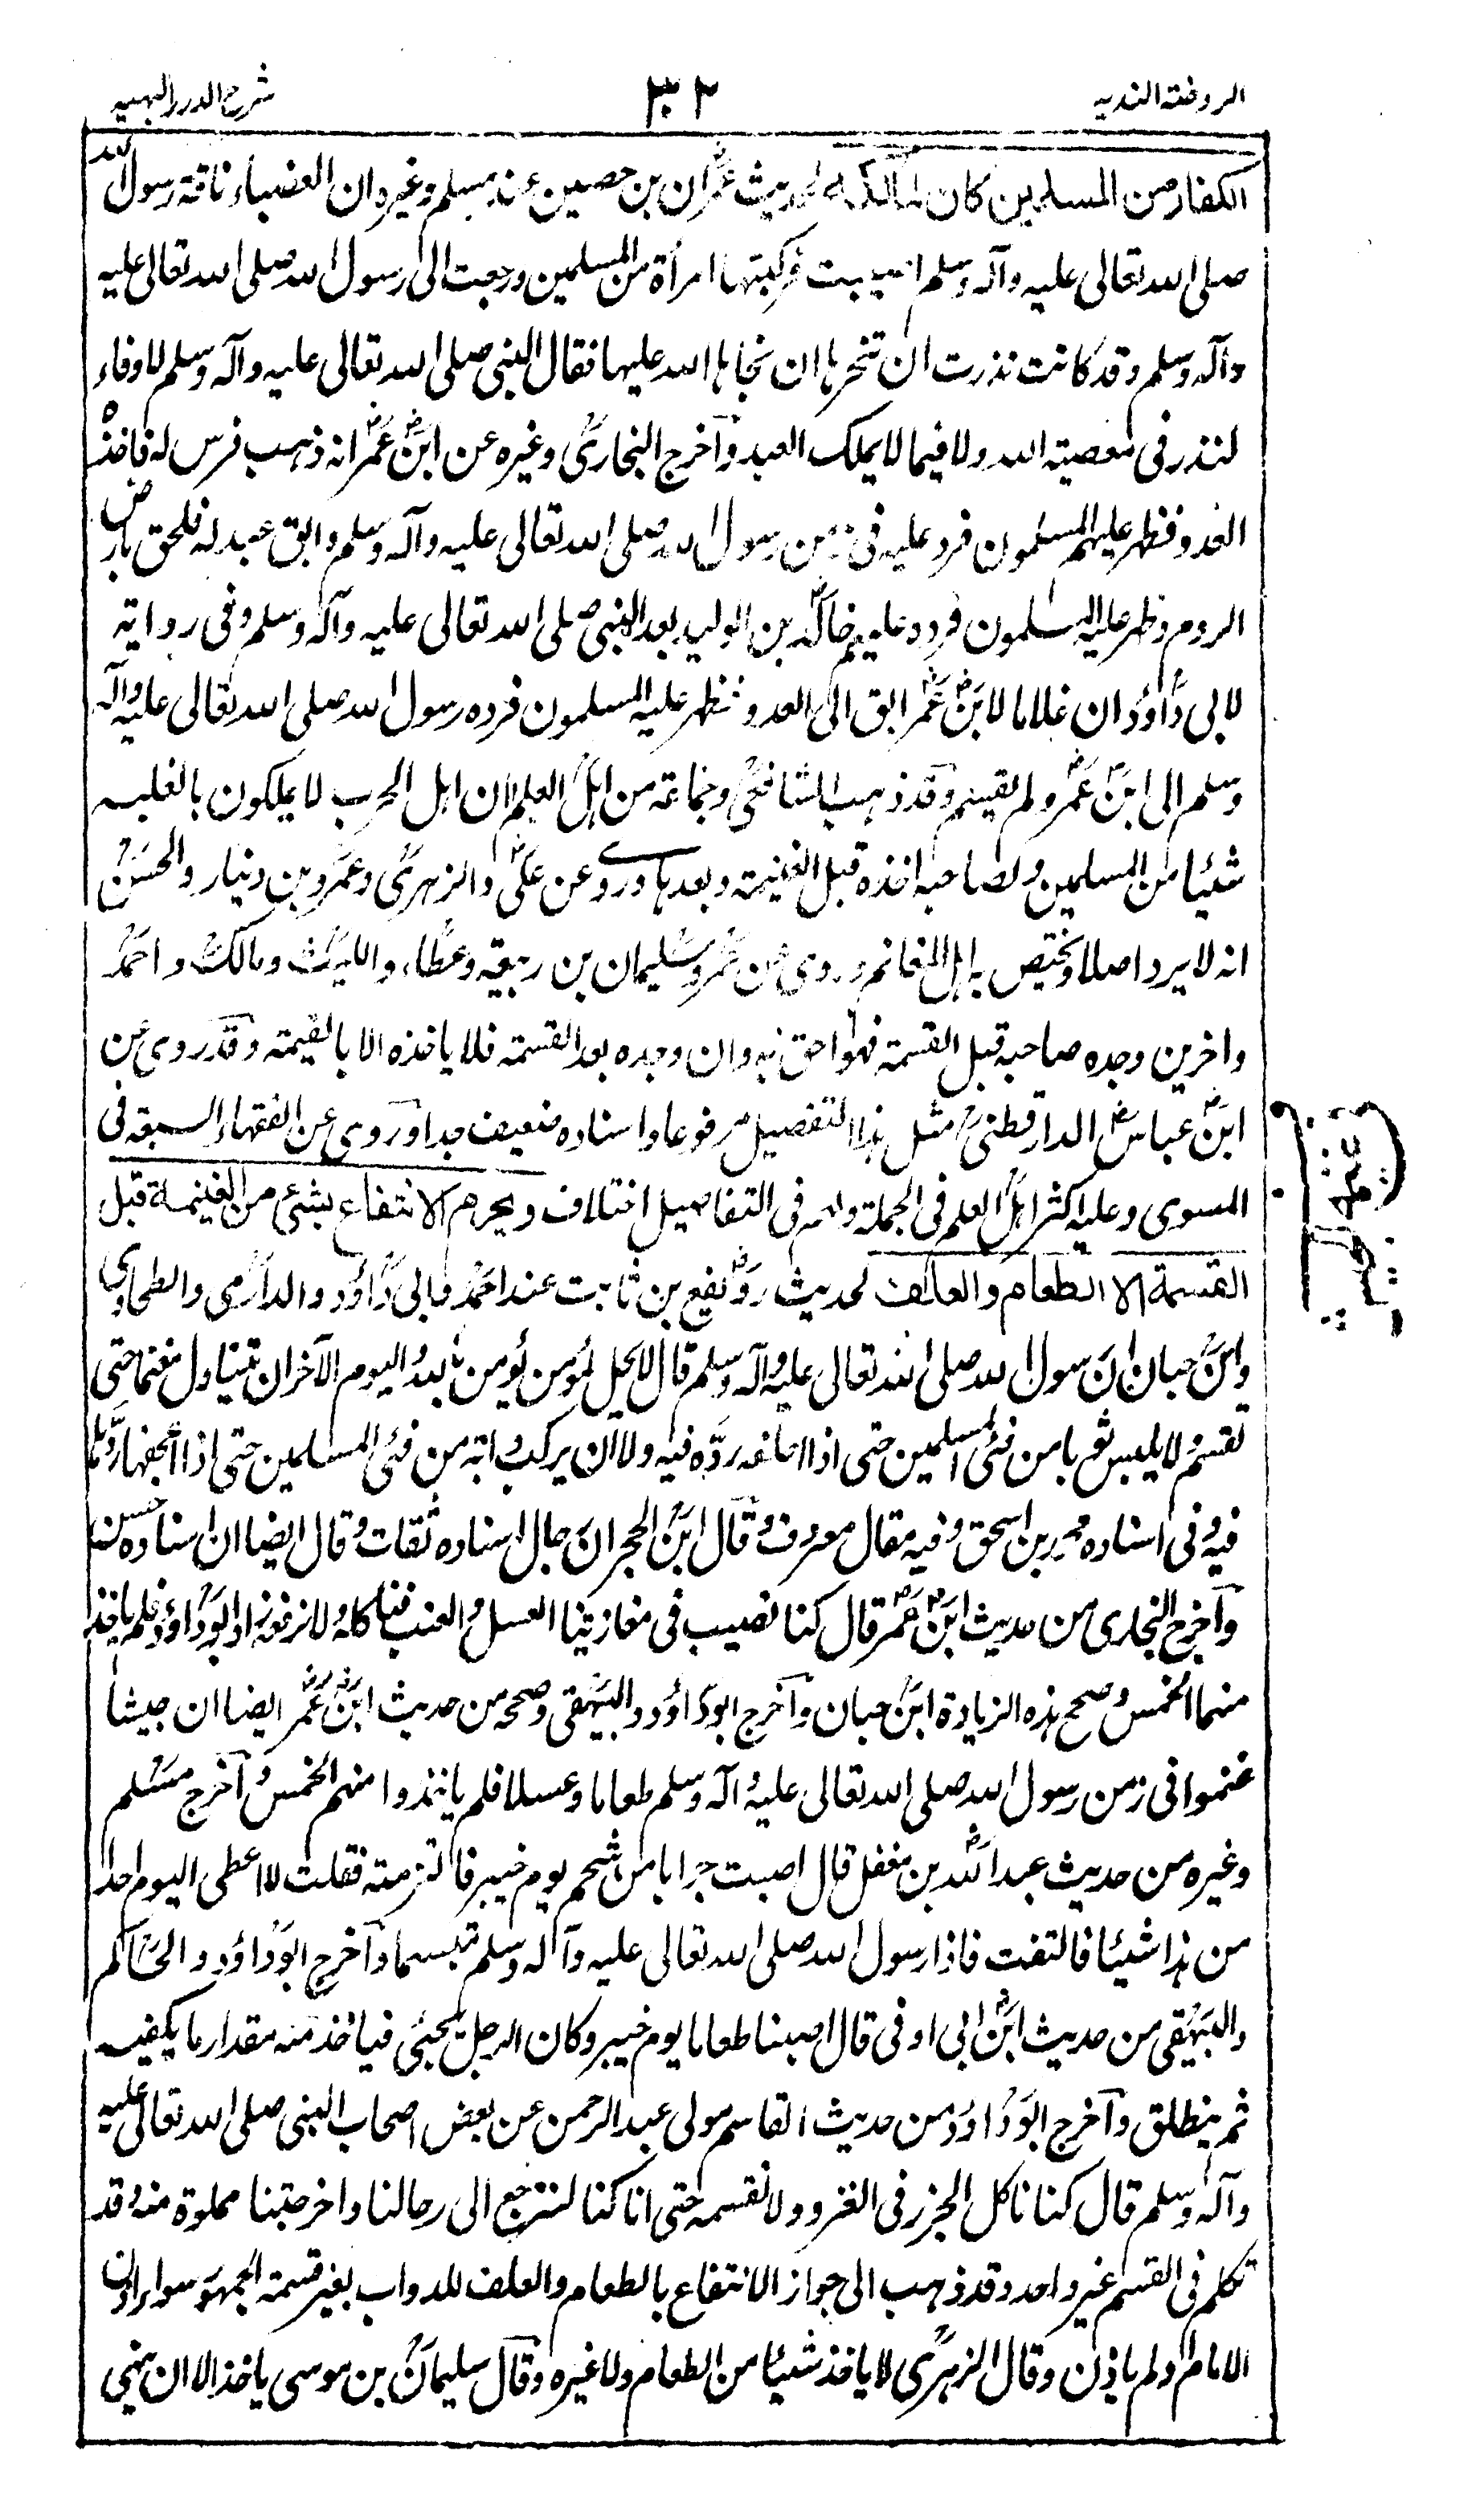 الروضة الندیہ ٣٢ شرح الدرر البهیہ
الکفار من المسلمین کان لمالکہ لحدیث عمران بن حصین عند مسلم وغیرہ ان العضباء ناقة رسول اللہ
صلی اللہ تعالی علیہ وآلہ وسلم اصیبت فرکبتها امرأة من المسلمین ورجعت الی رسول اللہ صلی اللہ تعالی علیہ
وآلہ وسلم وقد کانت نذرت ان تنحرہا ان نجاہا اللہ علیها فقال النبی صلی اللہ تعالی علیہ وآلہ وسلم لا وفاء
لنذر فی معصیة اللہ ولا فیما لا یملک العبد وآخرج البخاری وغیرہ عن ابن عمر انہ ذہب فرس لہ فاخذہ
العدو فظهر علیهم المسلمون فرد علیہ فی زمن رسول اللہ صلی اللہ تعالی علیہ وآلہ وسلم وابق عبد لہ فلحق بارض
الروم وظهر علیہ المسلمون فردہ علیہم خالد بن الولید بعد النبی صلی اللہ تعالی علیہ وآلہ وسلم وفی روایة
لابی داؤد ان غلاما لابن عمر ابق الی العدو فظهر علیہ المسلمون فردہ رسول اللہ صلی اللہ تعالی علیہ وآلہ
وسلم الی ابن عمر ولم یقسم وقد ذہب الشافعی وجماعة من اہل العلم ان اہل الحرب لا یملکون بالغلبہ
شیئا من المسلمین ولصاحبہ اخذہ قبل الغنیمة وبعدہا وروی عن علی والزہری وعمرو بن دینار والحسن
انہ لا یرد اصلا ویختص بہ اہل المغانم وروی عن عمر وسلیمان بن ربیعہ وعطاء واللیث ومالک واحمد
واخرین وجدہ صاحبہ قبل القسمة فهو احق بہ وان وجدہ بعد القسمة فلا یاخذہ الا بالقیمة وقد روی عن
ابن عباس الدارقطنی مثل ہذا التفصیل مرفوعا واسنادہ ضعیف جدا وروی عن الفقهاء السبعہ فی
المسوی وعلیہ اکثر اہل العلم فی الجملة ولهم فی التفاصیل اختلاف ویحرم الانتفاع بشیٔ من الغنیمة قبل
القسمة الا الطعام والعلف لحدیث رویفع بن ثابت عند احمد وابی داؤد والدارمی والطحاوی
وابن حبان ان رسول اللہ صلی اللہ تعالی علیہ وآلہ وسلم قال لا یحل لمؤمن یؤمن باللہ والیوم الآخر ان یتناول مغنما حتی
یقسم ولا یلبس ثوبا من فئ المسلمین حتی اذا اخلقہ ردہ فیہ ولا ان یرکب دابة من فئ المسلمین حتی اذا اعجفها ردہا
فیہ وفی اسنادہ محمد بن اسحق وفیہ مقال معروف وقال ابن الحجر ان رجال اسنادہ ثقات وقال ایضا ان اسنادہ حسن
وآخرج البخاری من حدیث ابن عمر قال کنا نصیب فی مغازینا العسل والعنب فناکلہ ولا نرفعہ زاد ابوداؤد فلم یاخذ
منهما الخمس وصحح ہذہ الزیادة ابن حبان وآخرج ابوداؤد والبیهقی وصححہ من حدیث ابن عمر ایضا ان جیشا
غنموا فی زمن رسول اللہ صلی اللہ تعالی علیہ وآلہ وسلم طعاما وعسلا فلم یاخذوا منهم الخمس وآخرج مسلم
وغیرہ من حدیث عبد اللہ بن مغفل قال اصبت جرابا من شحم یوم خیبر فالتزمتہ فقلت لا اعطی الیوم احدا
من ہذا شیئا فالتفت فاذا رسول اللہ صلی اللہ تعالی علیہ وآلہ وسلم تبسما وآخرج ابوداؤد والحاکم
والبیهقی من حدیث ابن ابی اوفی قال اصبنا طعاما یوم خیبر وکان الرجل یجیٔ فیاخذ منہ مقدار ما یکفیہ
ثم ینطلق وآخرج ابوداؤد من حدیث القاسم مولی عبد الرحمن عن بعض اصحاب النبی صلی اللہ تعالی علیہ
وآلہ وسلم قال کنا ناکل الجزر فی الغزو ولا نقسمہ حتی انا کنا لنرجع الی رحالنا واخرجتنا مملوة منہ وقد
تکلم فی القسم غیر واحد وقد ذہب الی جواز الانتفاع بالطعام والعلف للدواب بغیر قسمة الجمهور سواء اذن
الامام او لم یاذن وقال الزہری لا یاخذ شیئا من الطعام ولا غیرہ وقال سلیمان بن موسی یاخذ الا ان ینهی